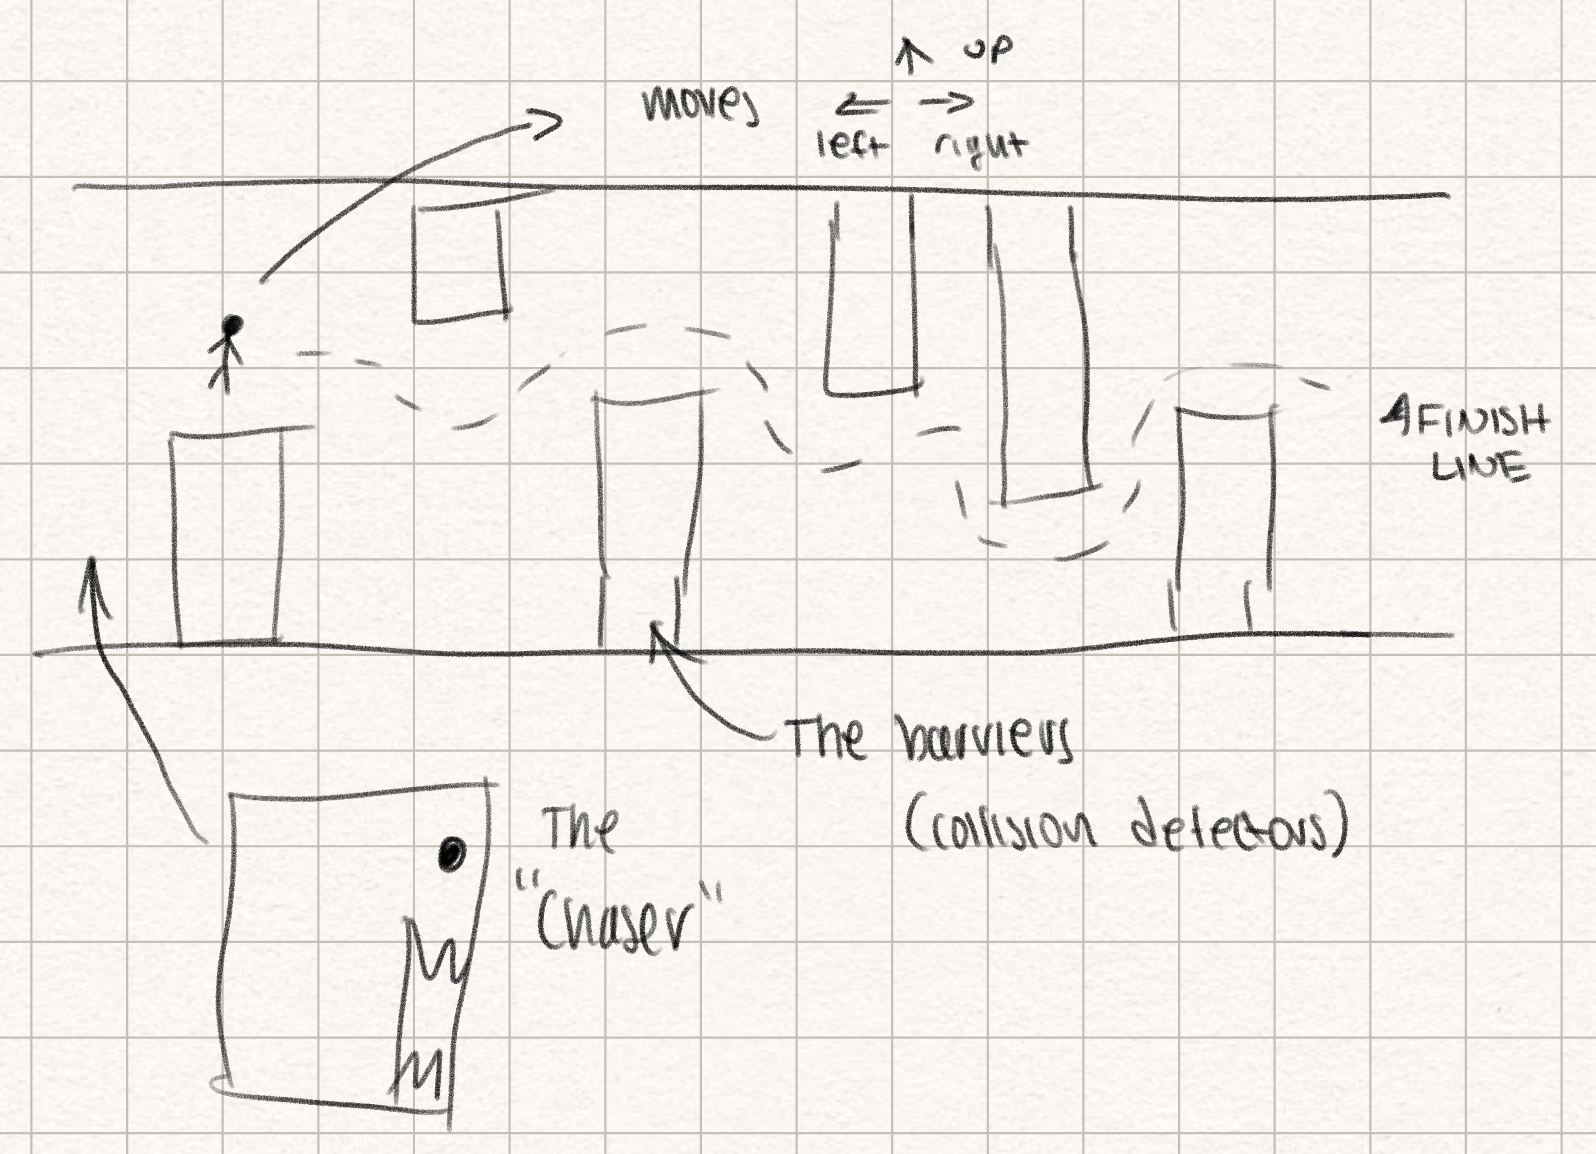 up
moves
left right
FINISH
LINE
The barriers
(collision detectors)
The
"Chaser"